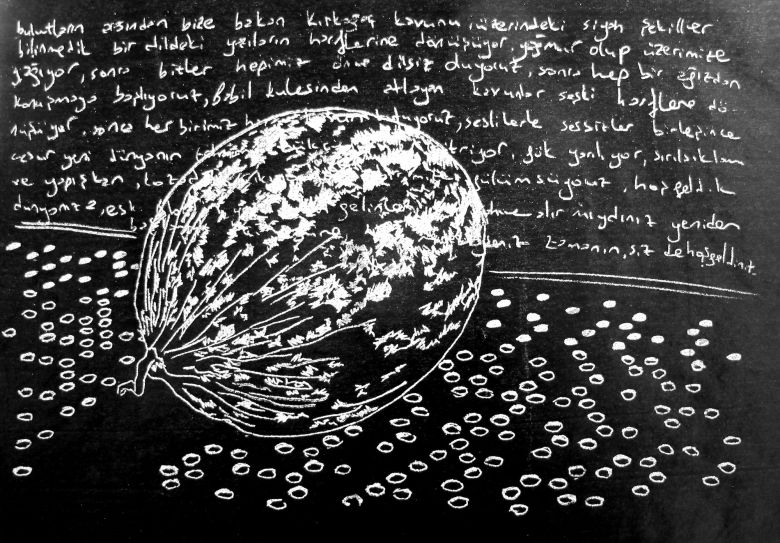 bulutların arasından bize bakan Kırkağaç kavunu üzerindeki siyah şekiller
bilinmedik bir dildeki yazıların harflerine dönüşüyor, yağmur olup üzerimize
yağıyor, sonra bizler hepimiz önce dilsiz oluyoruz, sonra hep bir ağızdan
konuşmaya başlıyoruz, Babil kulesinden atlayan kavunlar sesli harflere dö-
nüşüyor, sonra her birimiz oluyoruz, seslilerle sessizler birleşince
cesur yeni dünyanın gök yarılıyor, sırılsıklam
ve yapışkan, gülümsüyoruz, hoşgeldik
dünyamıza, gelinler alır mıydınız yeniden
zamanın, siz de hoşgeldiniz.